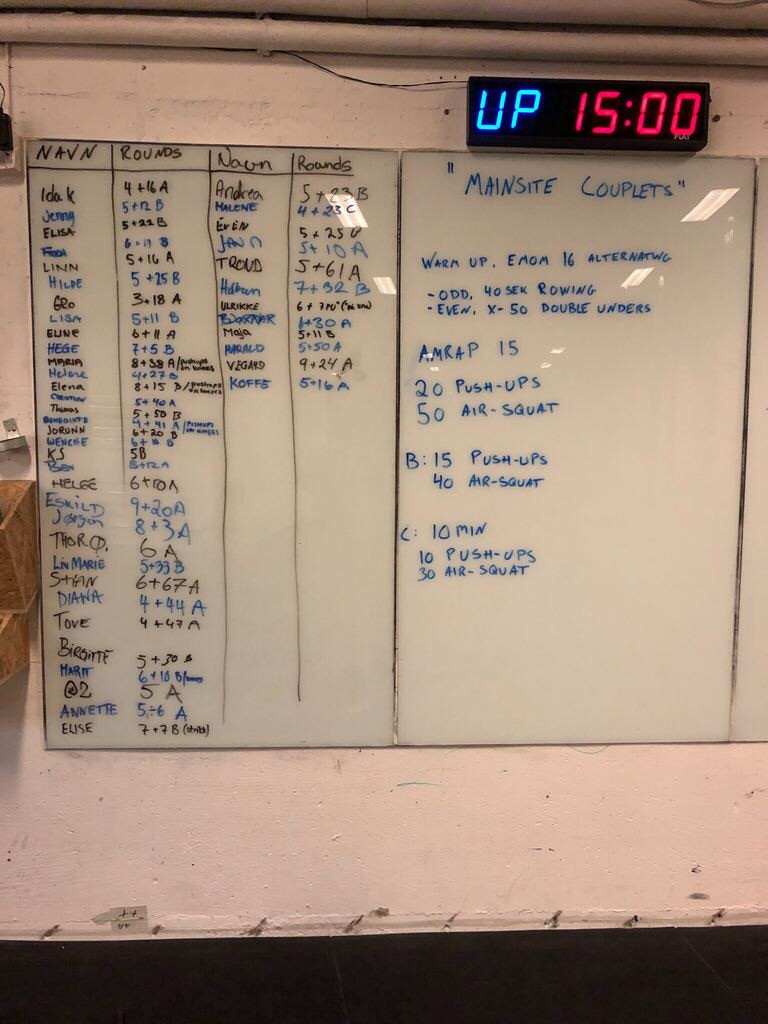 UP 15:00
NAVN ROUNDS Navn Rounds
Ida k 4+16A
Jenny 5+12 B
ELISA 5+22B
FRODA 6+19 B
LINN 5+16 A
HILDE 5+25B
GRO 3+18 A
LISA 5+11 B
ELINE 6+11 A
HEGE 7+5 B
MARIA 8+38 A/pushups on knees
Helene 4+27 B
Elena 8+15 B/pushups on knees
CHRISTIAN 5+40 A
Thomas 5+50 B
BENEDIKTE 4+41 A /PUSHUPS ON KNEES
JORUNN 6+20 B
WENCHE 6+10 B
KS 5B
BEN 8+12A
HELGE 6+10A
ESKILD 9+20A
Jørgen 8+3A
THOR Ø. 6 A
LIV MARIE 5+33B
STIAN 6+67A
DIANA 4+44 A
TOVE 4+47 A
BIRGITTE 5+30 B
MARIT 6+10 B/knees
@2 5 A
ANNETTE 5+6 A
ELISE 7+7B (strikk)
Andrea 5+23B
MALENE 4+23 C
EVEN 5+25
JAVN 5+10 A
TROND 5+61A
Håkon 7+32 B
ULRIKKE 6+
BJØRNAR 6+30 A
Maja 5+11 B
HARALD 5+50A
VEGARD 9+24 A
KOFFE 5+16 A
"MAINSITE COUPLETS"
WARM UP. EMOM 16 ALTERNATING
- ODD, 40 SEK ROWING
- EVEN, X-50 DOUBLE UNDERS
AMRAP 15
20 PUSH-UPS
50 AIR-SQUAT
B: 15 PUSH-UPS
40 AIR-SQUAT
C: 10 MIN
10 PUSH-UPS
30 AIR-SQUAT